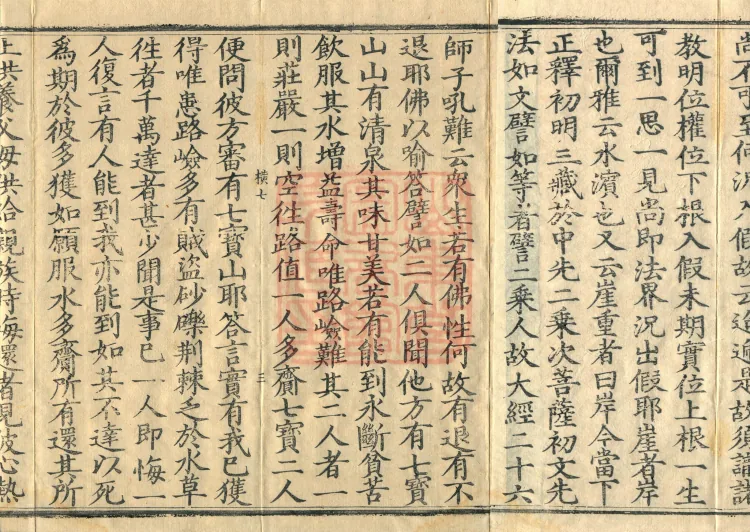 尚不可到何況入假故云迢遞是故須識諸
教明位權位下根入假未期實位上根一生
可到一思一見尚即法界況出假耶崖者岸
也爾雅云水濱也又云崖重者曰岸今當下
正釋初明三藏於中先二乘次菩薩初文先
法如文譬如等者譬二乘人故大經二十六
師子吼難云衆生若有佛性何故有退有不
退耶佛以喻答譬如二人俱聞他方有七寶
山山有清泉其味甘美若有能到永斷貧苦
飲服其水增益壽命唯路嶮難其二人者一
則莊嚴一則空往路值一人多齎七寶二人
橫七 三
便問彼方審有七寶山耶答言實有我已獲
得唯患路嶮多有賊盜砂礫荆棘乏於水草
往者千萬達者甚少聞是事已一人即悔一
人復言有人能到我亦能到如其不達以死
為期於彼多獲如願服水多齎所有還其所
上共養父母供給親族時悔還者見彼心熱